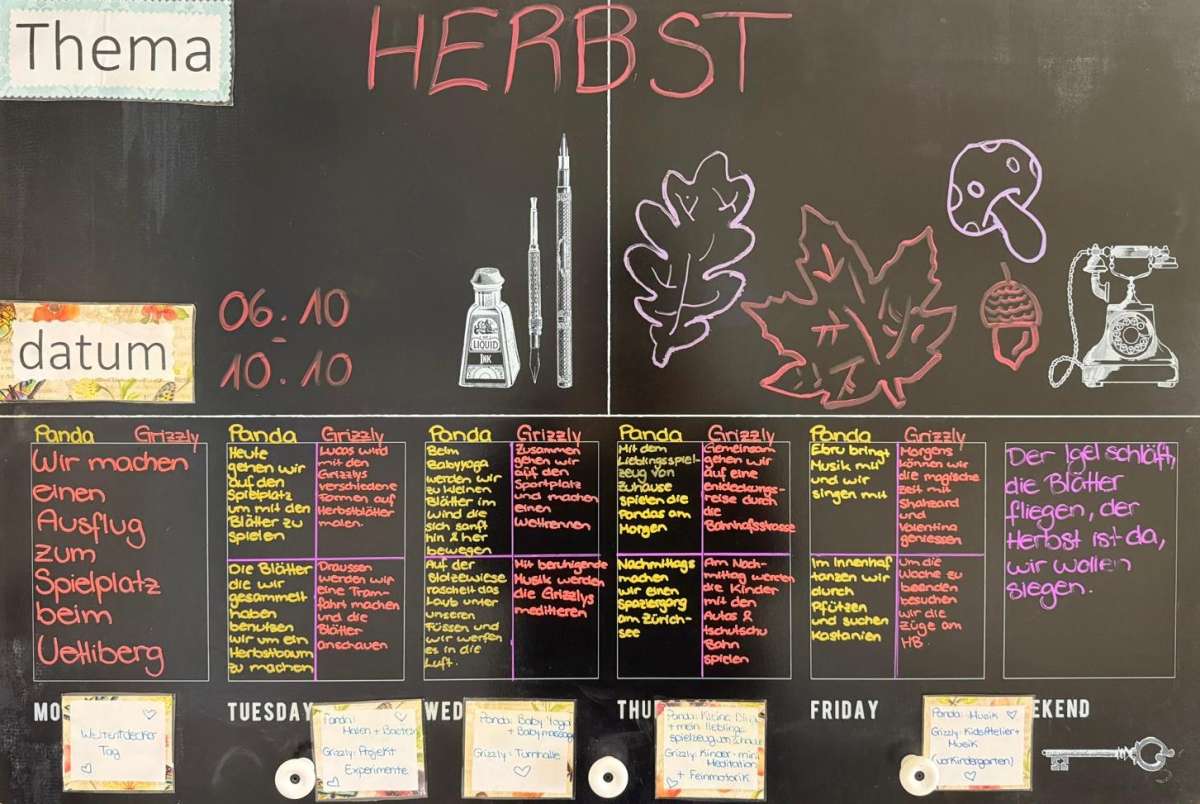 Thema
HERBST
datum
06.10
-
10.10
LIQUID
INK
Panda Grizzly
Wir machen
einen
Ausflug
zum
Spielplatz
beim
Uetliberg
Panda
Heute
gehen wir
auf den
Spielplatz
um mit den
Blätter zu
spielen
Grizzly
Lucas wird
mit den
Grizzlys
verschiedene
Formen auf
Herbstblätter
malen.
Die Blätter
die wir
gesammelt
haben
benutzen
wir um ein
Herbstbaum
zu machen
Draussen
werden wir
eine Tram-
fahrt machen
und die
Blätter
anschauen
Panda
Beim
Babyyoga
werden wir
zu kleinen
Blätter im
wind die
sich sanft
hin & her
bewegen
Grizzly
Zusammen
gehen wir
auf den
Sportplatz
und machen
einen
Wettrennen
Auf der
Blaizewiese
raschelt das
Laub unter
unseren
Füssen und
wir werfen
es in die
Luft.
Mit beruhigende
Musik werden
die Grizzlys
meditieren
Panda
Mit dem
Lieblingsspiel-
zeug von
Zuhause
spielen die
Pandas am
Morgen
Grizzly
Gemeinsam
gehen wir
auf eine
entdeckungs-
reise durch
die
Bahnhofsstrasse
Nachmittags
machen
wir einen
Spaziergang
am Zürich-
see
Am Nach-
mittag werden
die Kinder
mit den
Autos &
tschutschu
Bahn
spielen
Panda
Ebru bringt
Musik mit
und wir
singen mit
Grizzly
Morgens
können wir
die magische
Zeit mit
Shahzard
und
Valentina
geniessen
Im Innenhof
tanzen wir
durch
Pfützen
und suchen
Kastanien
Um die
Woche zu
beenden
besuchen
wir die
Züge am
HB.
Der Igel schläft,
die Blätter
fliegen, der
Herbst ist da,
wir wollen
siegen.
MO
TUESDAY
WED
THU
FRIDAY
EKEND
Weltentdecker
Tag
Panda:
Malen + Basteln
Grizzly: Projekt
Experimente
Panda: Baby Yoga
+ Babymassage
Grizzly: Turnhalle
Panda: Kleine
+ mein lieblings
spielzeug von Zuhause
Grizzly: Kinder-mini
Meditation
+ Feinmotorik
Panda: Musik
Grizzly: KidsAtelier +
Musik
(vorKindergarten)